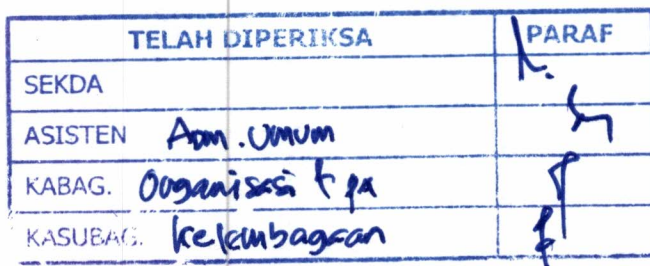 TELAH DIPERIKSA PARAF
SEKDA
ASISTEN Adm. Umum
KABAG. Organisasi
KASUBAG. Kelembagaan